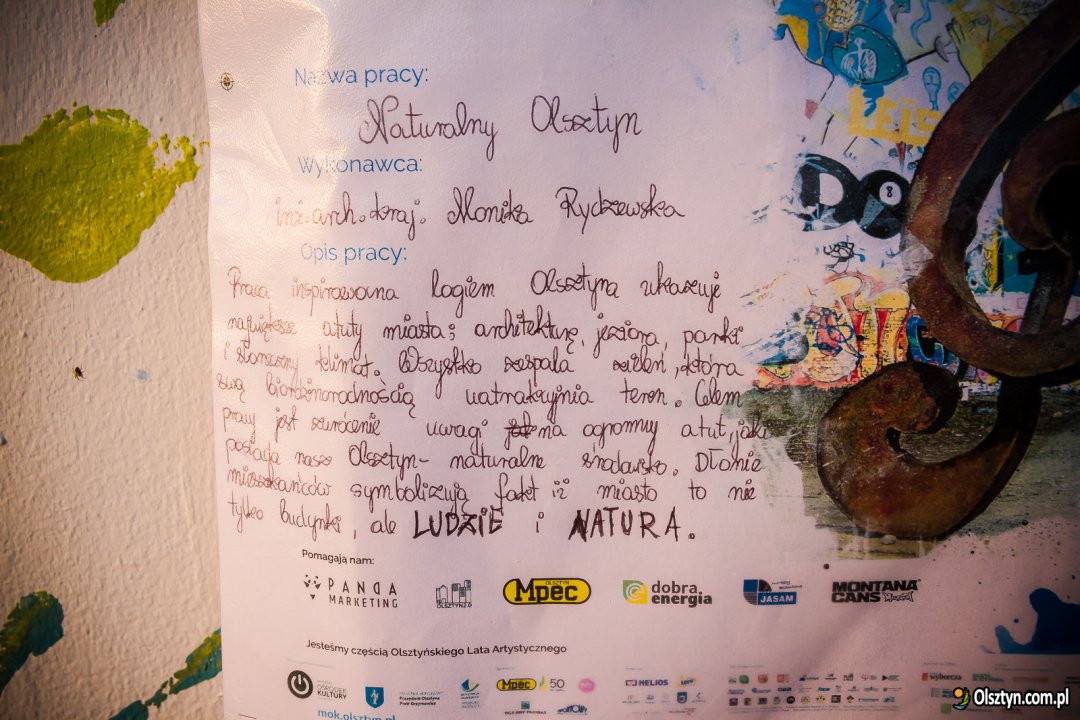 Nazwa pracy:
Naturalny Olsztyn
Wykonawca:
inż. arch. kraj. Monika Rydzewska
Opis pracy:
Praca inspirowana logiem Olsztyna ukazuje
największe atuty miasta; architekturę, jeziora, parki
i słoneczny klimat. Wszystko zespala zieleń, która
swą bioróżnorodnością uatrakcyjnia teren. Celem
pracy jest zwrócenie uwagi na ogromny atut, jaki
posiada nasz Olsztyn - naturalne środowisko. Dłonie
mieszkańców symbolizują fakt iż miasto to nie
tylko budynki, ale LUDZIE i NATURA.
Pomagają nam:
PANDA MARKETING
OLSZTYN2.0
OLSZTYN Mpec
dobra energia
JASAM
MONTANA CANS
Jesteśmy częścią Olsztyńskiego Lata Artystycznego
OŚRODEK KULTURY
Prezydent Olsztyna
Piotr Grzymowicz
Mpec
50
HELIOS
wyborcza
mok.olsztyn.pl
Olsztyn.com.pl